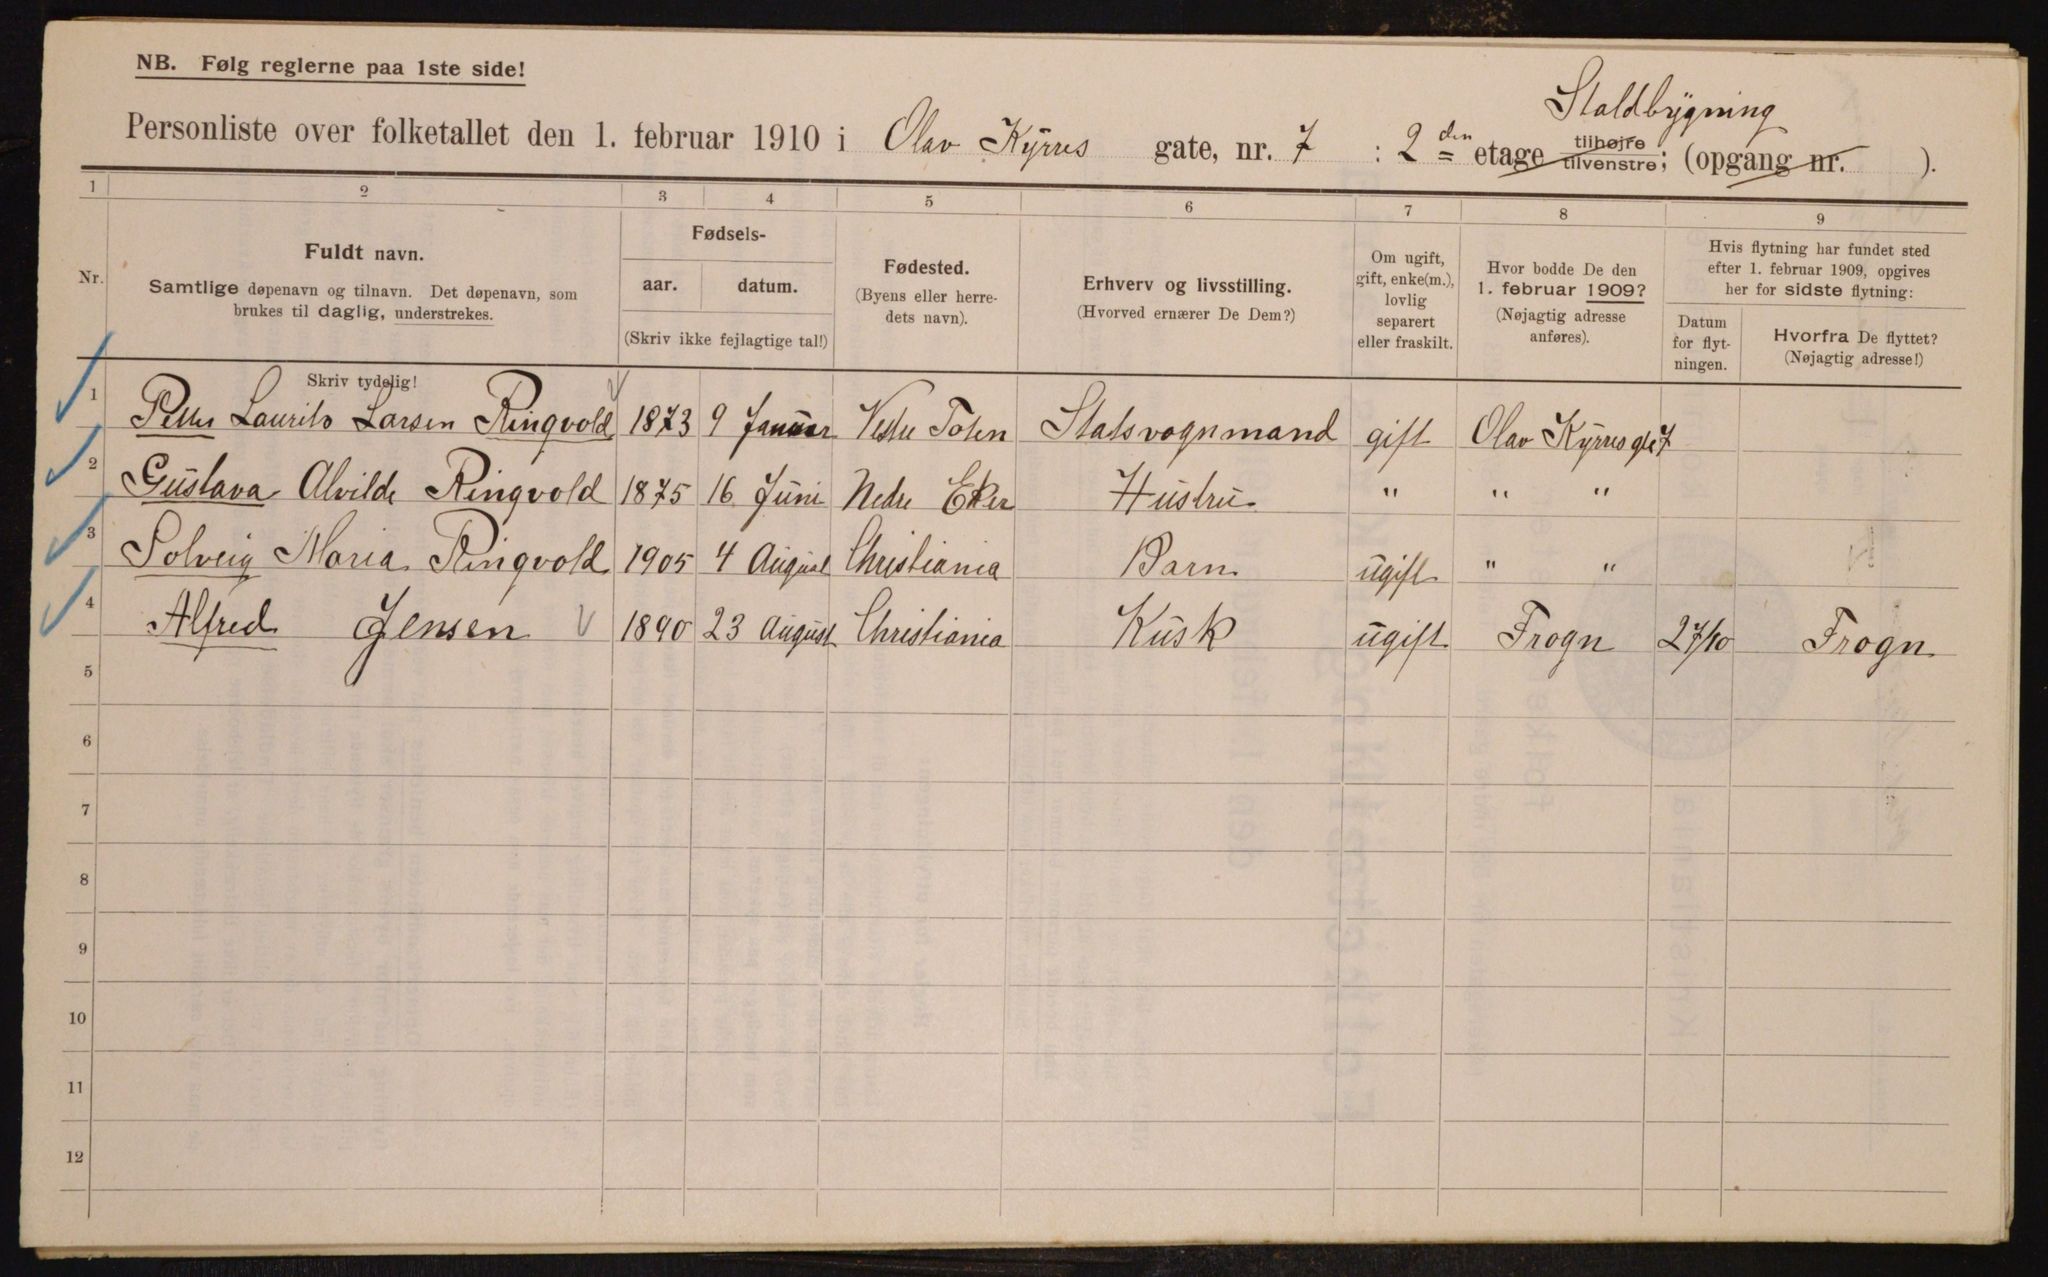 NB. Følg reglerne paa 1ste side!
Staldbygning
Personliste over folketallet den 1. februar 1910 i Olav Kyrres gate, nr. 7 : 2den etage tilhøjre tilvenstre; (opgang nr. ).
1 2 3 4 5 6 7 8 9
Nr. Fuldt navn. Samtlige døpenavn og tilnavn. Det døpenavn, som brukes til daglig, understrekes.
Fødsels- aar. datum. (Skriv ikke fejlagtige tal!)
Fødested. (Byens eller herredets navn).
Erhverv og livsstilling. (Hvorved ernærer De Dem?)
Om ugift, gift, enke(m.), lovlig separert eller fraskilt.
Hvor bodde De den 1. februar 1909? (Nøjagtig adresse anføres).
Hvis flytning har fundet sted efter 1. februar 1909, opgives her for sidste flytning:
Datum for flytningen.
Hvorfra De flyttet? (Nøjagtig adresse!)
Skriv tydelig!
1 Petter Laurits Larsen Ringvold 1873 9 Januar Vestre Toten Stadsvognmand gift Olav Kyrres gt 7
2 Gustava Alvilde Ringvold 1875 16 Juni Nedre Eker Hustru " " "
3 Solveig Maria Ringvold 1905 4 August Christiania Barn ugift " "
4 Alfred Jensen 1890 23 August Christiania Kusk ugift Frogn 27/10 Frogn
5
6
7
8
9
10
11
12